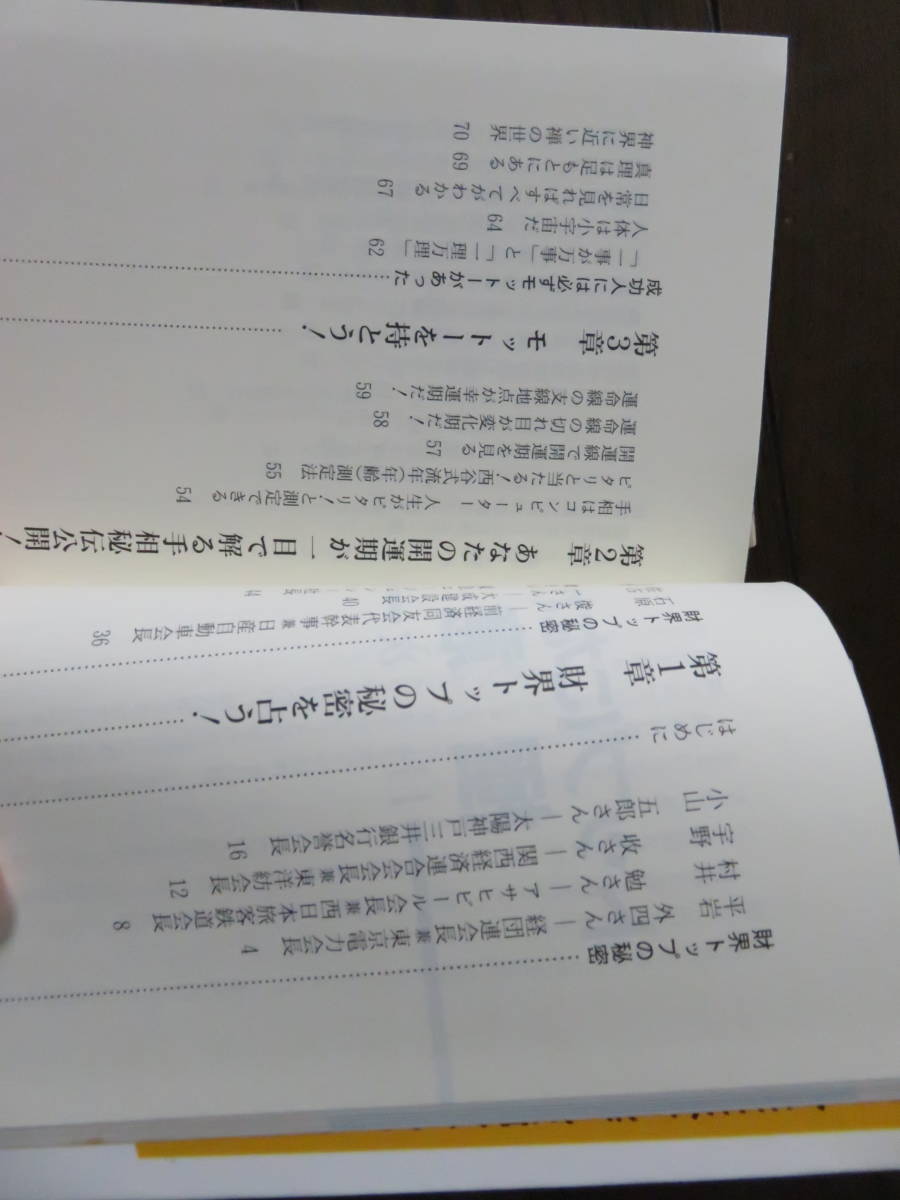 財界トップの秘密
平岩 外四さん―経団連会長兼東京電力会長 4
村井 勉さん―アサヒビール会長兼西日本旅客鉄道会長 8
宇野 收さん―関西経済連合会会長兼東洋紡会長 12
小山 五郎さん―太陽神戸三井銀行名誉会長 16
はじめに
第1章 財界トップの秘密を占う！
財界トップの秘密
石原 俊さん―前経済同友会代表幹事兼日産自動車会長 36
さん―大成建設会長 40
44
第2章 あなたの開運期が一目で解る手相秘伝公開！
手相はコンピューター 人生がピタリ！と測定できる 54
ピタリと当たる！西谷式流年(年齢)測定法 55
開運線で開運期を見る 57
運命線の切れ目が変化期だ！ 58
運命線の支線地点が幸運期だ！ 59
第3章 モットーを持とう！
成功人には必ずモットーがあった
「一事が万事」と「一理万理」 62
人体は小宇宙だ 64
日常を見ればすべてがわかる 67
真理は足もとにある 69
神界に近い禅の世界 70